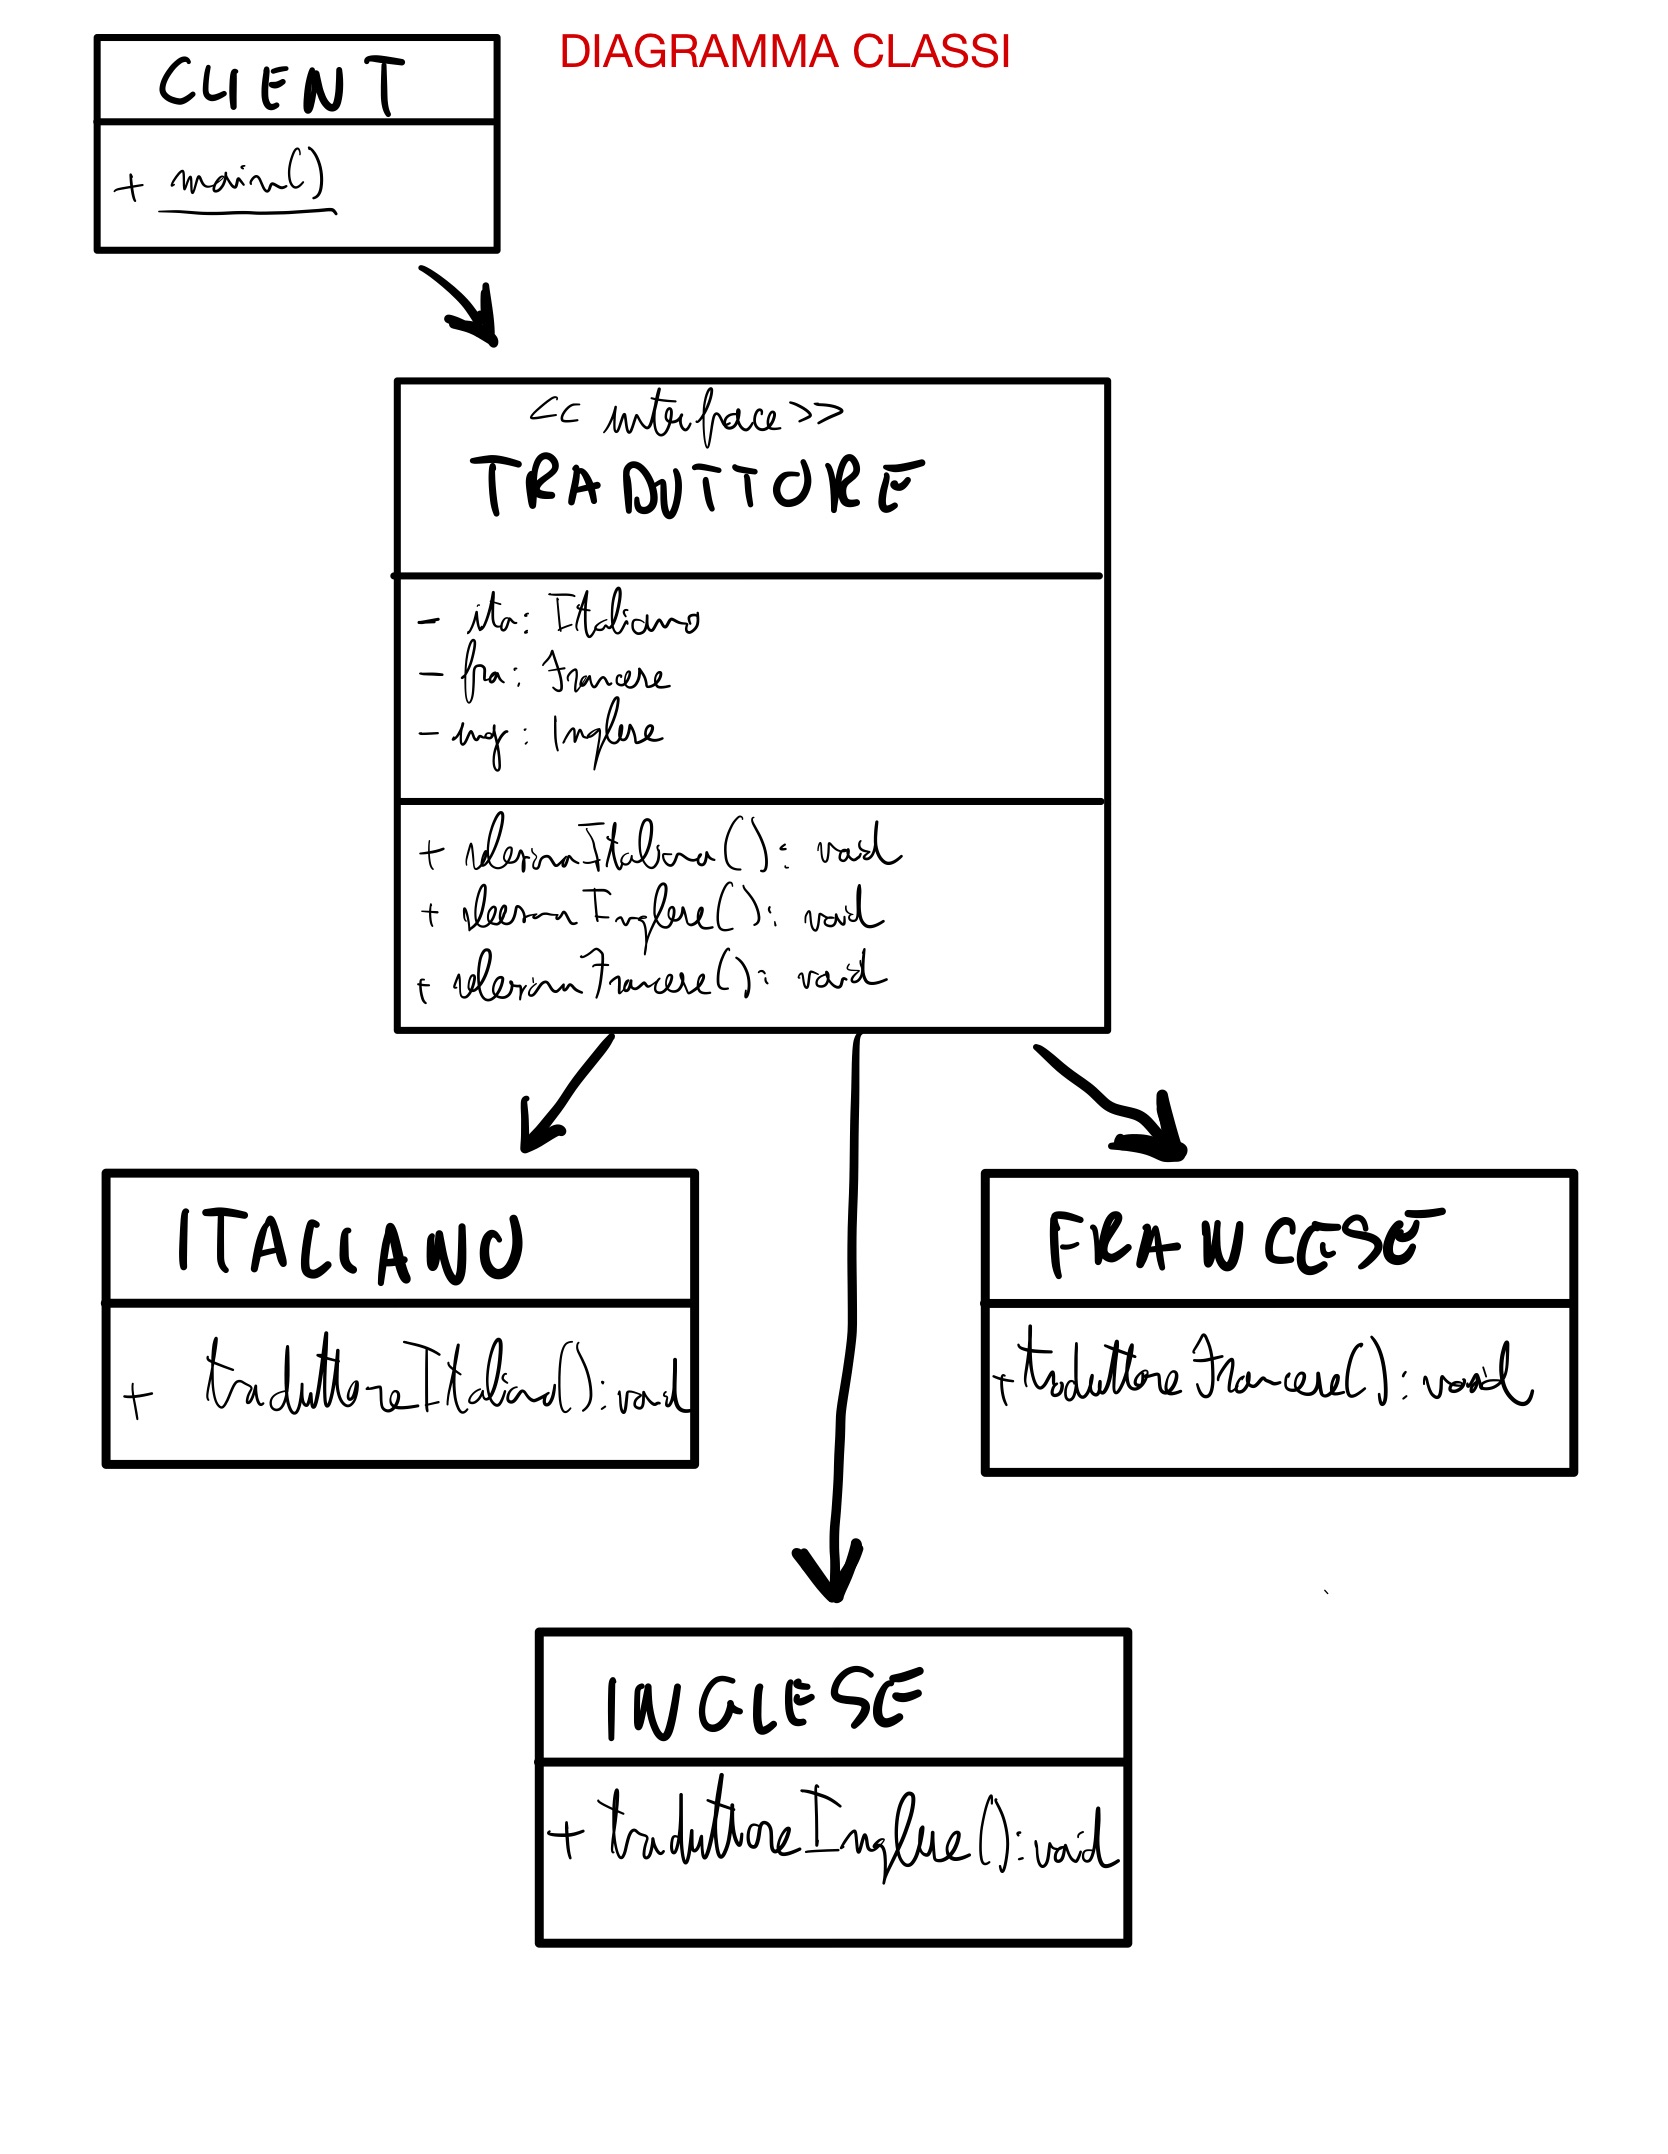 DIAGRAMMA CLASSI
CLIENT
+ main()
<< interface >>
TRADUTTORE
- ita: Italiano
- fra: Francese
- ing: Inglese
+ Italiano(): void
+ Inglese(): void
+ Francese(): void
ITALIANO
+ traduttoreItaliano(): void
FRANCESE
+ traduttoreFrancese(): void
INGLESE
+ traduttoreInglese(): void